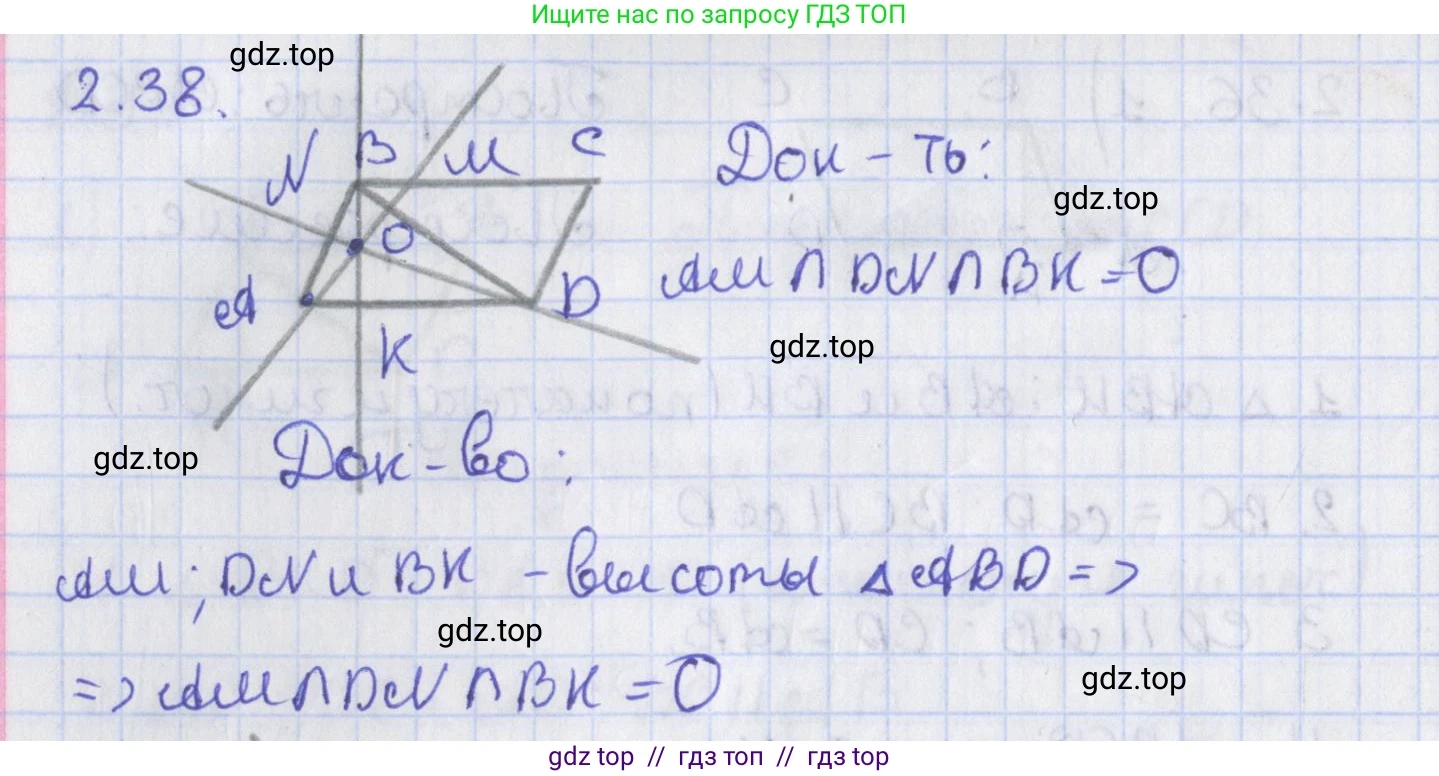 Ищите нас по запросу ГДЗ ТОП
gdz.top
2.38.
N B M C
Док-ть:
gdz.top
O
AM ∩ DN ∩ BK = O
A D
K
gdz.top
gdz.top
Док-во:
AM; DN и BK - высоты △ ABD =>
gdz.top
=> AM ∩ DN ∩ BK = O
gdz.top
gdz top // гдз топ // гдз top